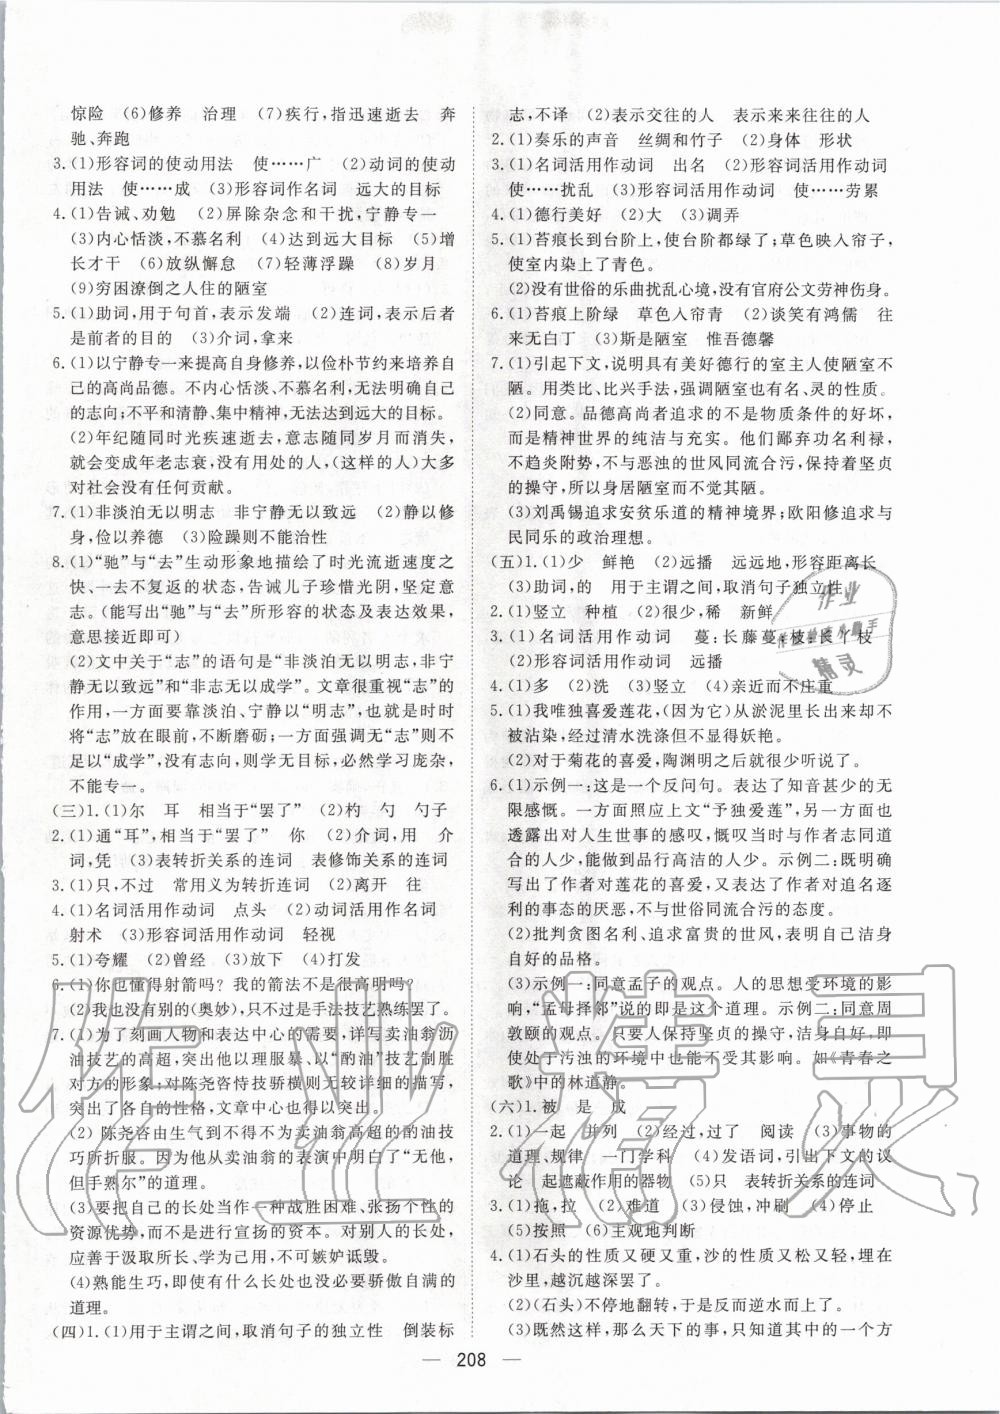 惊险　(6)修养　治理　(7)疾行,指迅速逝去　奔
驰、奔跑
3.(1)形容词的使动用法　使……广　(2)动词的使动
用法　使……成　(3)形容词作名词　远大的目标
4.(1)告诫、劝勉　(2)屏除杂念和干扰,宁静专一
(3)内心恬淡,不慕名利　(4)达到远大目标　(5)增
长才干　(6)放纵懈怠　(7)轻薄浮躁　(8)岁月
(9)穷困潦倒之人住的陋室
5.(1)助词,用于句首,表示发端　(2)连词,表示后者
是前者的目的　(3)介词,拿来
6.(1)以宁静专一来提高自身修养,以俭朴节约来培养自
己的高尚品德。不内心恬淡、不慕名利,无法明确自己
的志向;不平和清静、集中精神,无法达到远大目标。
(2)年纪随同时光疾速逝去,意志随同岁月而消失,
就会变成年老志衰,没有用处的人,(这样的人)大多
对社会没有任何贡献。
7.(1)非淡泊无以明志　非宁静无以致远　(2)静以修
身,俭以养德　(3)险躁则不能治性
8.(1)“驰”与“去”生动形象地描绘了时光流逝速度之
快、一去不复返的状态,告诫儿子珍惜光阴,坚定意
志。(能写出“驰”与“去”所形容的状态及表达效果,
意思接近即可)
(2)文中关于“志”的语句是“非淡泊无以明志,非宁
静无以致远”和“非志无以成学”。文章很重视“志”的
作用,一方面要靠淡泊、宁静以“明志”,也就是时时
将“志”放在眼前,巩固之;一方面强调无“志”则不
足以“成学”,没有志向,则无定向学习,必然学习庞杂,
不能专一。
(三)1.(1)尔　耳　相当于“罢了”　(2)杓　勺　勺子
2.(1)通“耳”,相当于“罢了”　你　(2)介词,用　介
词,凭　(3)表转折关系的连词　表修饰关系的连词
3.(1)只,不过　常用义为转折连词　(2)离开　往
4.(1)名词活用作动词　点头　(2)动词活用作名词
射术　(3)形容词活用作动词　轻视
5.(1)夸耀　(2)曾经　(3)放下　(4)打发
6.(1)你也懂得射箭吗?我的箭法不是很高明吗?
(2)我也没有别的(奥妙),只不过是手法技艺熟练罢了。
7.(1)为了刻画人物和表达中心的需要,详写卖油翁沥
油技艺的高超,突出他以理服暴、以“酌油”技艺制胜
对方的形象;对陈尧咨恃技骄横则无较详细的描写,
突出了各自的性格,文章中心也得以突出。
(2) 陈尧咨由生气到不得不为卖油翁高超的酌油技
巧所折服。因为他从卖油翁的表演中明白了“无他,
但手熟尔”的道理。
(3)要把自己的长处当作一种战胜困难、张扬个性的
资源优势,而不是进行宣扬的资本。对别人的长处,
应善于汲取所长、学为己用,不可嫉妒诋毁。
(4)熟能生巧,即使有什么长处也没必要骄傲自满的
道理。
(四)1.(1)用于主谓之间,取消句子的独立性　倒装标
志,不译　(2)表示交往的人　表示来来往往的人
2.(1)奏乐的声音　丝绸和竹子　(2)身体　形状
3.(1)名词活用作动词　出名　(2)形容词活用作动词
使……扰乱　(3)形容词活用作动词　使……劳累
4.(1)德行美好　(2)大　(3)调弄
5.(1)苔痕长到台阶上,使台阶都绿了;草色映入帘子,
使室内染上了青色。
(2)没有世俗的乐曲扰乱心境,没有官府公文劳神伤身。
6.(1)苔痕上阶绿　草色入帘青　(2)谈笑有鸿儒　往
来无白丁　(3)斯是陋室　惟吾德馨
7.(1)引起下文,说明具有美好德行的室主人使陋室不
陋。用类比、比兴手法,强调陋室有名、灵的性质。
(2)同意。品德高尚者追求的不是物质条件的好坏,
而是精神世界的纯洁与充实。他们鄙弃功名利禄,
不趋炎附势,不与恶浊的世风同流合污,保持着坚贞
的操守,所以身居陋室而不觉其陋。
(3)刘禹锡追求安贫乐道的精神境界;欧阳修追求与
民同乐的政治理想。
(五)1.(1)少　鲜艳　(2)远播　远远地,形容距离长
(3)助词,的　用于主谓之间,取消句子独立性
2.(1)竖立　种植　(2)很少,稀　新鲜
3.(1)名词活用作动词　蔓:长藤蔓　枝:长丫枝
(2)形容词活用作动词　远播
4.(1)多　(2)洗　(3)竖立　(4)亲近而不庄重
5.(1)我唯独喜爱莲花,(因为它)从淤泥里长出来却不
被沾染,经过清水洗涤但不显得妖艳。
(2)对于菊花的喜爱,陶渊明之后就很少听说了。
6.(1)示例一:这是一个反问句。表达了知音甚少的无
限感慨。一方面照应上文“予独爱莲”,另一方面也
透露出对人生世事的感叹,慨叹当时与作者志同道
合的人少,能做到品行高洁的人少。示例二:既明确
写出了作者对莲花的喜爱,又表达了作者对追名逐
利的事态的厌恶,不与世俗同流合污的态度。
(2)批判贪图名利、追求富贵的世风,表明自己洁身
自好的品格。
(3)示例一:同意孟子的观点。人的思想受环境的影
响,“孟母择邻”说的即是这个道理。示例二:同意周
敦颐的观点。只要人保持坚贞的操守,洁身自好,即
使处于污浊的环境中也能不受其影响。如《青春之
歌》中的林道静。
(六)1.被　是　成
2.(1)一起　并列　(2)经过,过了　阅读　(3)事物的
道理、规律　一门学科　(4)发语词,引出下文的议
论　起遮蔽作用的器物　(5)只　表转折关系的连词
3.(1)拖,拉　(2)难道　(3)侵蚀,冲刷　(4)停止
(5)按照　(6)主观地判断
4.(1)石头的性质又硬又重,沙的性质又松又轻,埋在
沙里,越沉越深罢了。
(2)(石头)不停地翻转,于是反而逆水而上了。
(3)既然这样,那么天下的事,只知道其中的一个方
— 208 —
作业
精灵
作业精灵